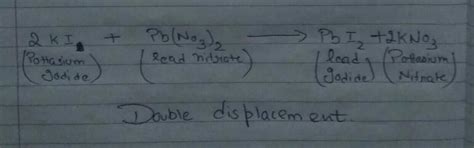 2KI + Pb(No3)2 → PbI2 + 2KNO3
(Pottasium Iodide) (lead nitrate) (lead Iodide) (Pottasium Nitrate)
Double displacement.